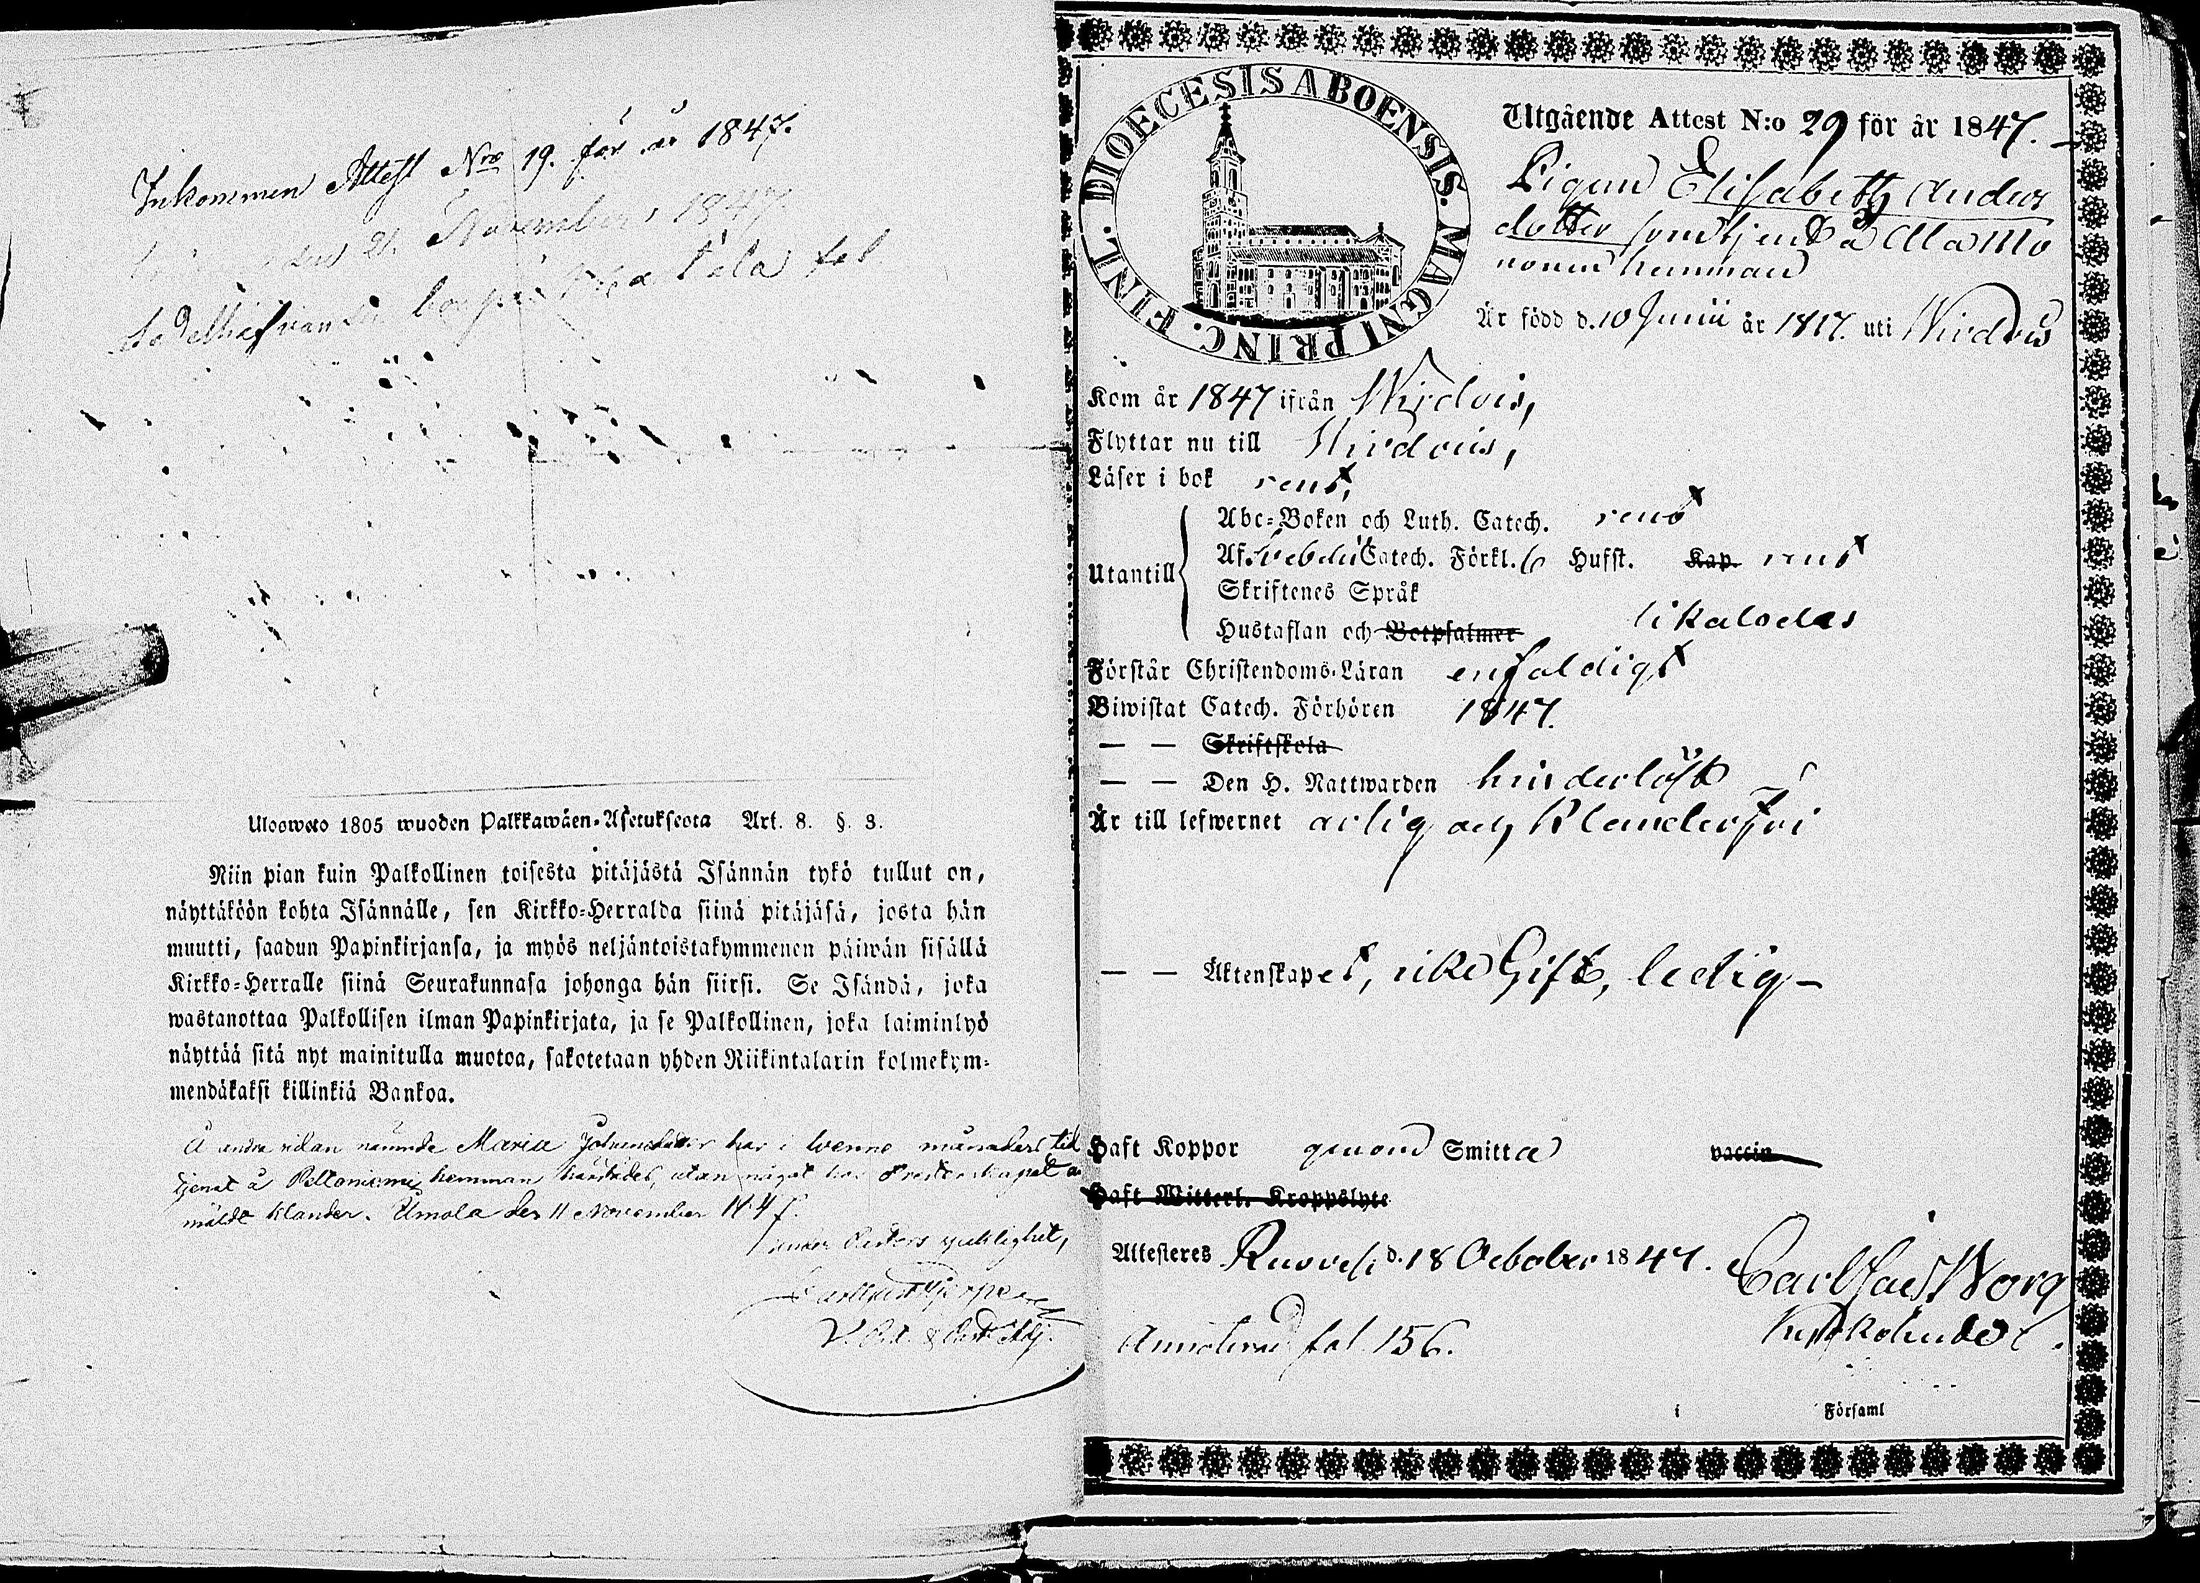 Inkommen Attest Nro 19. för år 1847.
den 21 November 1847.
Ulosweto 1805 wuoden Palkkawäen-Asetuksesta Art. 8. §. 3.
Niin pian kuin Palkollinen toisesta pitäjästä Isännän tykö tullut on,
näyttäköön kohta Isännälle, sen Kirkko-Herralda siinä pitäjäsä, josta hän
muutti, saadun Papinkirjansa, ja myös neljäntoistakymmenen päiwän sisällä
Kirkko-Herralle siinä Seurakunnasa johonga hän siirsi. Se Isändä, joka
wastanottaa Palkollisen ilman Papinkirjata, ja se Palkollinen, joka laiminlyö
näyttää sitä nyt mainitulla muotoa, sakotetaan yhden Riikintalarin kolmekym-
mendäkaksi killinkiä Bankoa.
Å andra sidan nämnde Maria Johansdotter har i tvenne månaders tid
tjenat å Peltoniemi hemman härstädes, utan något har Presterskapet an
mäldt klander. Umola den 11 November 1847.
under Pastors
DIOECESIS ABOENSIS. MAGNI PRINC. FINL.
Utgående Attest N:o 29 för år 1847.
Pigan Elisabeth Anders
dotter som tjent å Ala Mo
nonen hemman
Är född d. 10 Junii år 1817. uti Wirdois
Kom år 1847 ifrån Wirdois,
Flyttar nu till Wirdois,
Läser i bok rent,
Utantill
Abc-Boken och Luth. Catech. rent
Af Svebelii Catech. Förkl. 6 Hufst. Kap. rent
Skriftenes Språk
Hustaflan och Botpsalmer likaledes
Förstår Christendoms-Läran enfaldigt
Biwistat Catech. Förhören 1847.
— — Skriftskola
— — Den H. Nattwarden hinderlöst
Är till lefwernet ärlig och Klanderfri
— — Äktenskapet, icke Gift, ledig –
Haft Koppor genom Smitta vaccin
Haft Mitterl. Kroppslyte
Attesteras Ruovesi d. 18 October 1847. Carl
Annoterad fol. 156.
i Församl